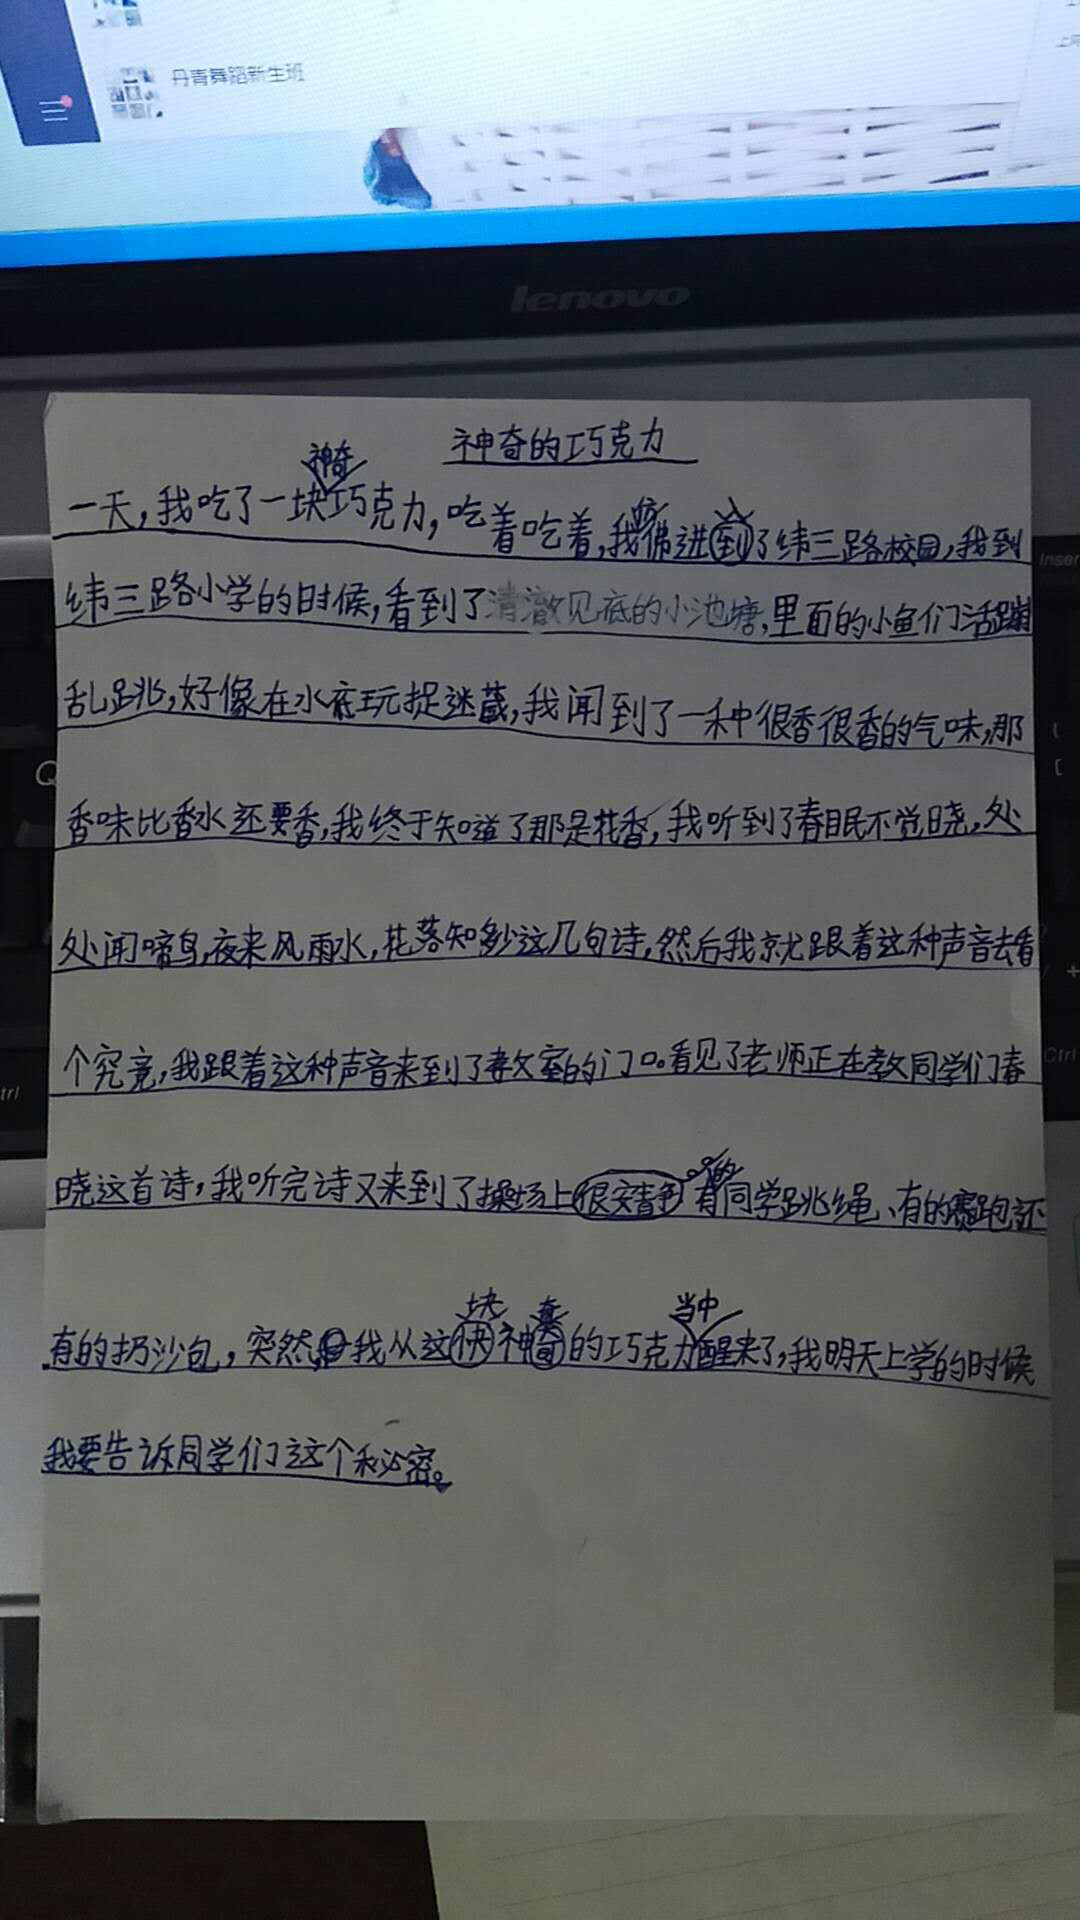 丹青舞蹈新生班
lenovo
神奇的巧克力
神奇
一天,我吃了一块巧克力,吃着吃着,我佛进到了纬三路校园,我到
纬三路小学的时候,看到了清澈见底的小池塘,里面的小鱼们活蹦
乱跳,好像在水底玩捉迷藏,我闻到了一种很香很香的气味,那
香味比香水还要香,我终于知道了那是花香,我听到了春眠不觉晓,处
处闻啼鸟,夜来风雨水,花落知多少这几句诗,然后我就跟着这种声音去看
个究竟,我跟着这种声音来到了教室的门口。看见了老师正在教同学们春
晓这首诗,我听完诗又来到了操场上很安静。有的同学跳绳、有的赛跑还
块 当中
有的扔沙包,突然我从这快神奇的巧克力醒来了,我明天上学的时候
我要告诉同学们这个秘密。
Inser
Q
Ctrl
trl